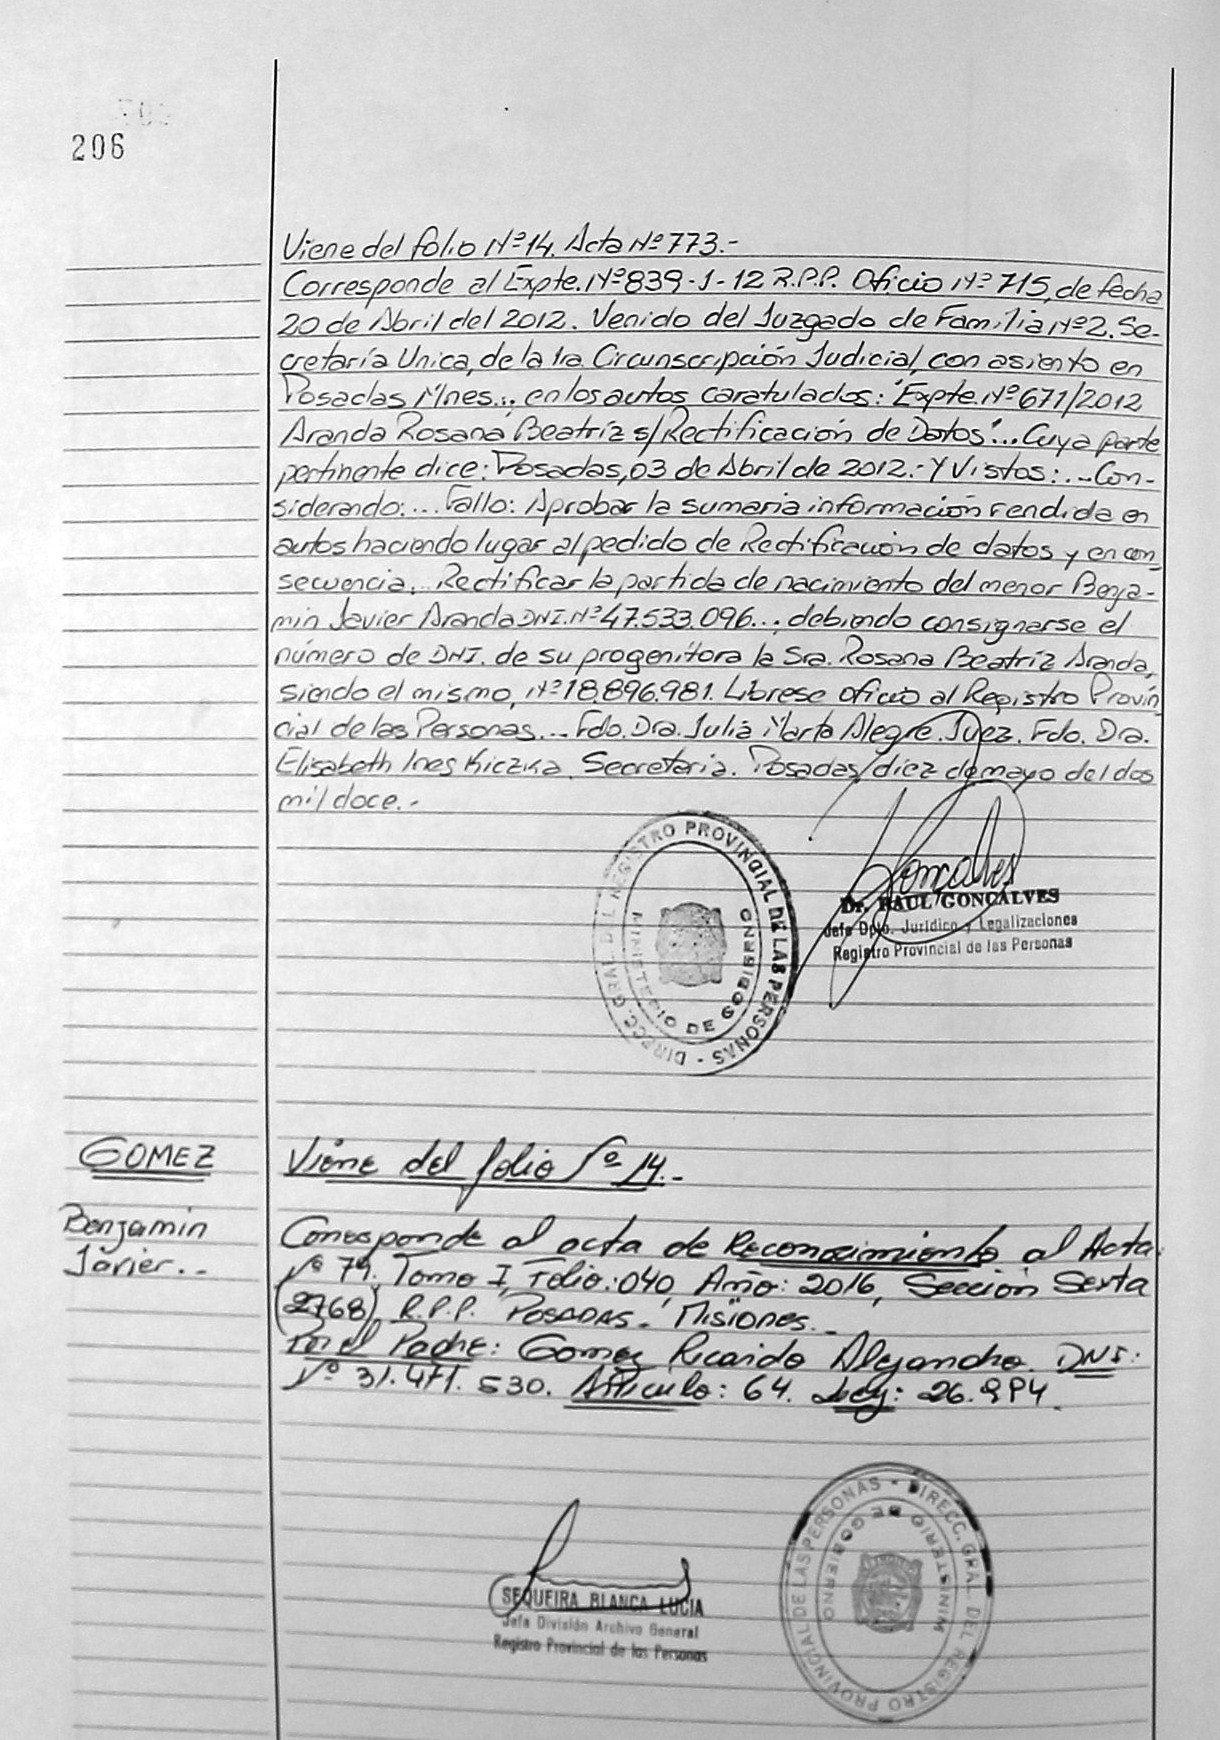 206
Viene del folio Nº14. Acta Nº773.-
Corresponde al Expte. Nº839-J-12 R.P.P. Oficio Nº715, de fecha
20 de Abril del 2012. Venido del Juzgado de Familia Nº2. Se-
cretaría Unica, de la 1ra. Circunscripción Judicial, con asiento en
Posadas Mnes... en los autos caratulados: "Expte. Nº671/2012
Aranda Rosana Beatríz s/Rectificación de Datos"... Cuya parte
pertinente dice: Posadas, 03 de Abril de 2012.- Y Vistos:... Con-
siderando:... Fallo: Aprobar la sumaria información rendida en
autos haciendo lugar al pedido de Rectificación de datos y en con
secuencia... Rectificar la partida de nacimiento del menor Benja-
mín Javier Aranda DNI. Nº47.533.096... debiendo consignarse el
número de DNI. de su progenitora la Sra. Rosana Beatríz Aranda,
siendo el mismo, Nº18.896.981. Líbrese oficio al Registro Provin
cial de las Personas... Fdo. Dra. Julia Marta Alegre. Juez. Fdo. Dra.
Elisabeth Ines Kiczka. Secretaria. Posadas, diez de mayo del dos
mil doce.-
DIRECC. GRAL. DEL REGISTRO PROVINCIAL DE LAS PERSONAS -
MINISTERIO DE GOBIERNO
Goncalves
Dr. RAUL GONCALVES
Jefe Dpto. Jurídico y Legalizaciones
Registro Provincial de las Personas
GOMEZ
Benjamin
Javier.-
Viene del folio Nº 14.-
Corresponde al acta de Reconocimiento al Acta:
Nº 79. Tomo I, Folio: 040, Año: 2016, Sección Sexta
(2768), R.P.P. Posadas - Misiones.-
Por el Padre: Gomez Ricardo Alejandro. DNI:
Nº 31.471.530. Artículo: 64. Ley: 26.994.
SEQUEIRA BLANCA LUCIA
Jefa División Archivo General
Registro Provincial de las Personas
DIRECC. GRAL. DEL REGISTRO PROVINCIAL DE LAS PERSONAS -
MINISTERIO DE GOBIERNO